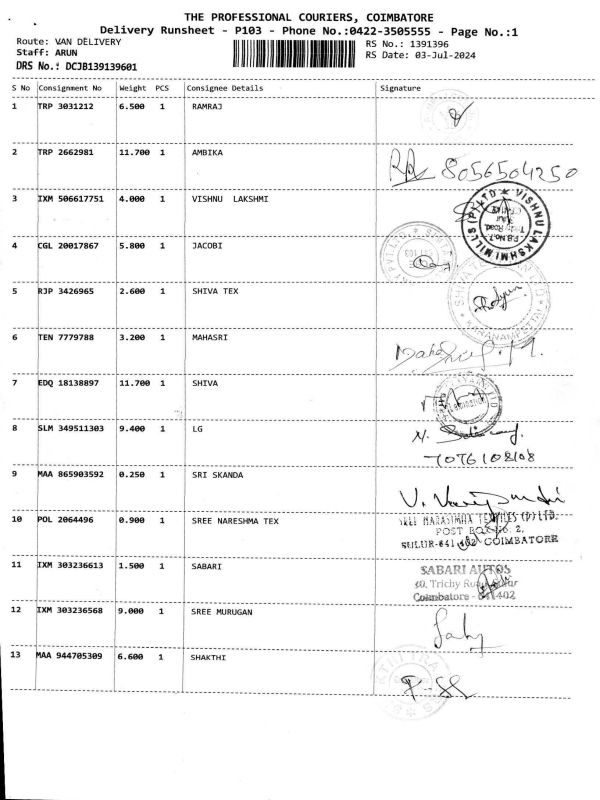 THE PROFESSIONAL COURIERS, COIMBATORE
Delivery Runsheet - P103 - Phone No.:0422-3505555 - Page No.:1
Route: VAN DELIVERY
Staff: ARUN
DRS No.: DCJB139139601
RS No.: 1391396
RS Date: 03-Jul-2024
S No Consignment No Weight PCS Consignee Details Signature
1 TRP 3031212 6.500 1 RAMRAJ
2 TRP 2662981 11.700 1 AMBIKA 8056504250
3 IXM 506617751 4.000 1 VISHNU LAKSHMI
VISHNU LAKSHMI MILLS (P) LTD
4 CGL 20017867 5.800 1 JACOBI
5 RJP 3426965 2.600 1 SHIVA TEX
KARANAMPETTAI
6 TEN 7779788 3.200 1 MAHASRI
7 EDQ 18138897 11.700 1 SHIVA
8 SLM 349511303 9.400 1 LG
7076108108
9 MAA 865903592 0.250 1 SRI SKANDA
10 POL 2064496 0.900 1 SREE NARESHMA TEX
SREE NARASIMHA TEXTILES (P) LTD.
POST BOX No. 2,
SULUR-641 402 COIMBATORE
11 IXM 303236613 1.500 1 SABARI
SABARI AUTOS
Trichy Road, Sulur
Coimbatore - 641402
12 IXM 303236568 9.000 1 SREE MURUGAN
13 MAA 944705309 6.600 1 SHAKTHI